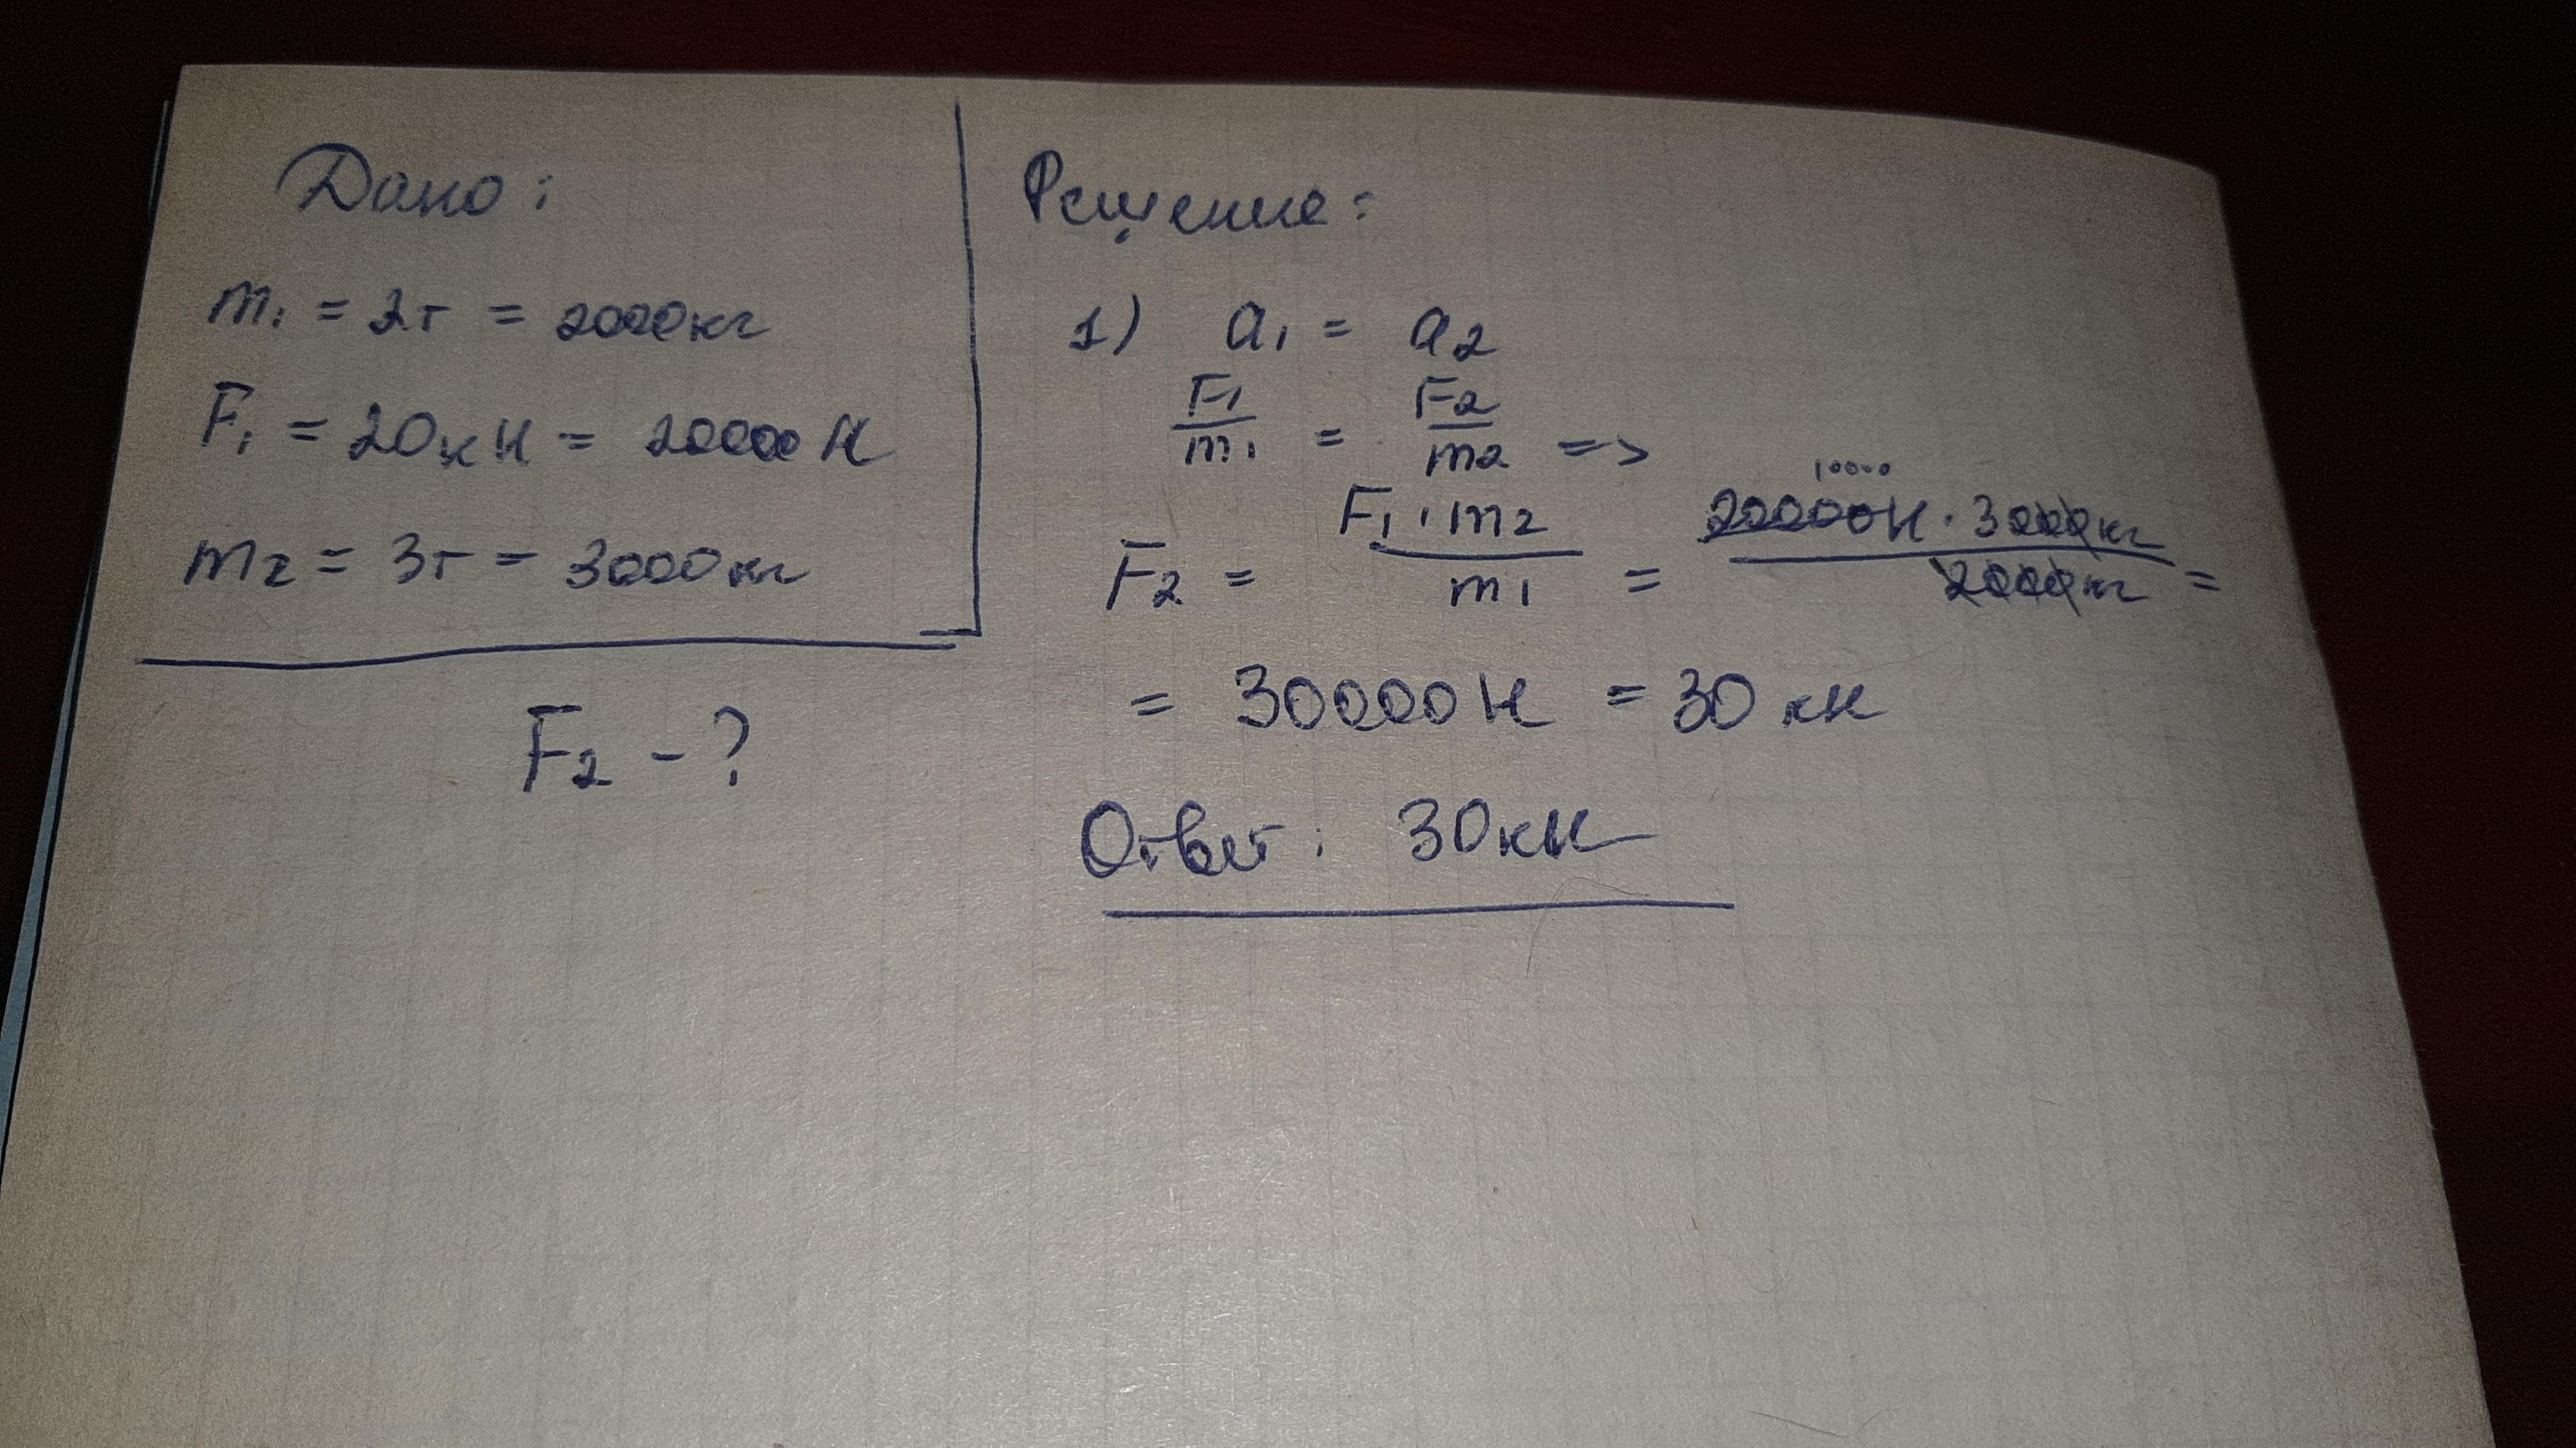 Дано:
m₁ = 2т = 2000кг
F₁ = 20кН = 20000Н
m₂ = 3т = 3000кг
F₂ - ?
Решение:
1) a₁ = a₂
F₁/m₁ = F₂/m₂ =>
10000
F₂ = F₁·m₂/m₁ = 20000Н·3000кг/2000кг =
= 30000Н = 30кН
Ответ: 30кН